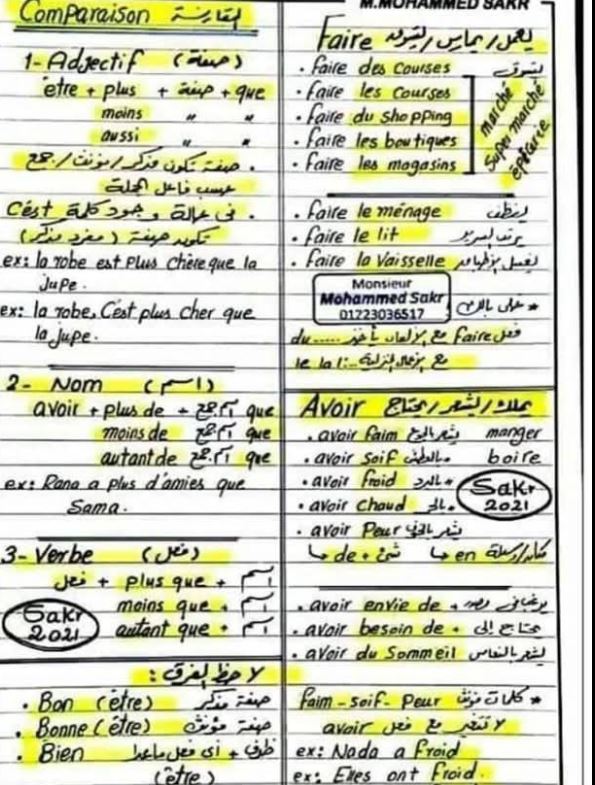 Comparaison المقارنة
1- Adjectif (صفة)
être + plus + صفة + que
moins " "
aussi " "
. صفة تكون مذكر / مؤنث / جمع
حسب فاعل الجملة
. فى حالة وجود كلمة C'est
تكون صفة (مفرد مذكر)
ex: la robe est Plus chère que la
Jupe.
ex: la robe, C'est plus cher que
la jupe.
2- Nom (اسم)
avoir + plus de + اسم جمع que
moins de اسم جمع que
autant de اسم جمع que
ex: Rana a plus d'amies que
Sama.
3- Verbe (فعل)
فعل + plus que + اسم
moins que + اسم
autant que + اسم
Sakr
2021
لاحظ الفرق :
. Bon (être) صفة مذكر
. Bonne (être) صفة مؤنث
. Bien ظرف + أى فعل ماعدا
(être)
M.MOHAMMED SAKR
Faire يعمل / يمارس / يتسوق
. faire des courses يتسوق
. faire les courses
. faire du shopping
. faire les boutiques
. faire les magasins
marché
Super marché
épicerie
. faire le ménage ينظف
. faire le lit يرتب السرير
. faire la vaisselle يغسل الأطباق
Monsieur
Mohammed Sakr
01223036517
* خلى بالك
فعل Faire مع الألعاب يأخذ du.....
مع الأعمال المنزلية :- le la l
Avoir يملك / يشعر / يحتاج
. avoir faim يشعر بالجوع manger
. avoir soif بالعطش boire
. avoir froid بالبرد
. avoir chaud بالحر
Sakr
2021
. avoir Peur يشعر بالخوف
de + شئ en
. avoir envie de +
. avoir besoin de + يحتاج إلى
. avoir du Sommeil يشعر بالنعاس
* كلمات مؤنث faim - soif - Peur
لا تتغير مع فعل avoir
ex: Nada a froid
ex: Elles ont froid.